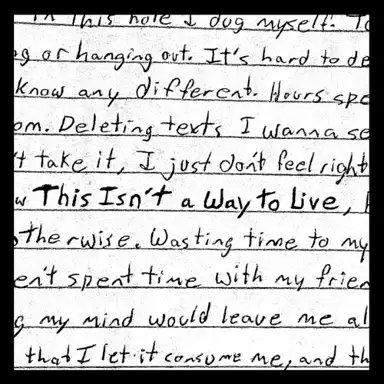 in this hole I dug myself. To
g or hanging out. It's hard to de
know any different. Hours spe
om. Deleting texts I wanna se
't take it, I just don't feel right
w This Isn't a Way to Live,
otherwise. Wasting time to my
en't spent time with my frien
g my mind would leave me al
that I let it consume me, and th